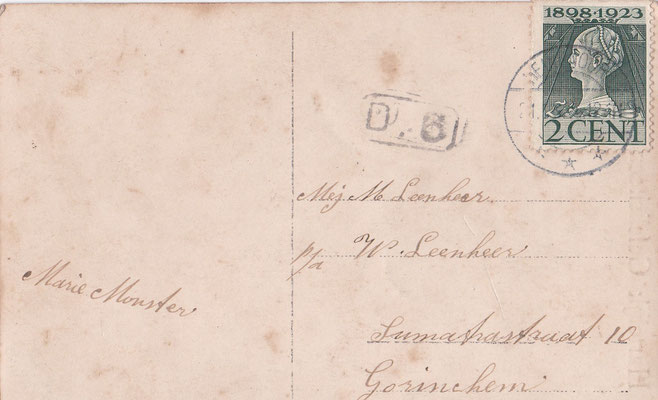 1898-1923
2 CENT
D. 6
Mej M. Leenheer
p/a W. Leenheer
Sumatrastraat 10
Gorinchem
Marie Monster